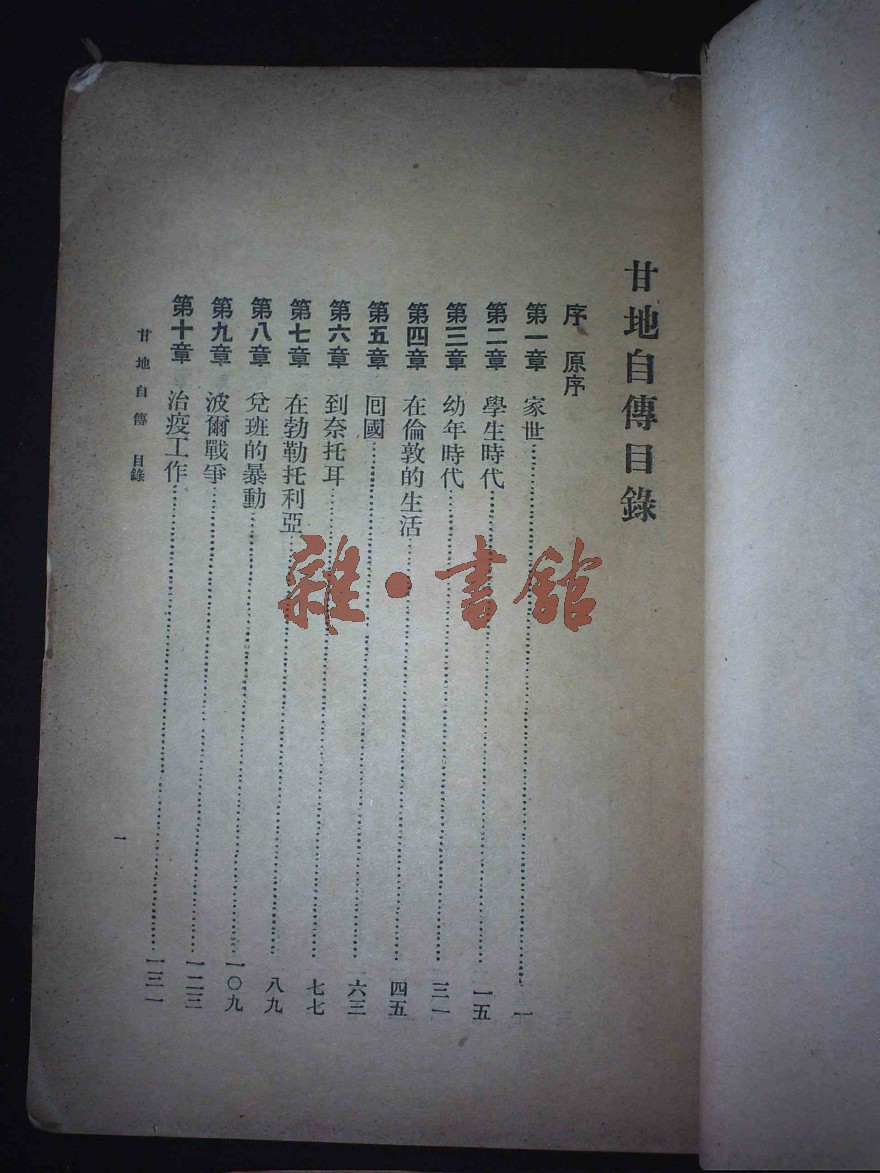 甘地自傳目錄
序 原序
第一章 家世……一
第二章 學生時代……一五
第三章 幼年時代……三一
第四章 在倫敦的生活……四五
第五章 囘國……六三
第六章 到奈托耳……七七
第七章 在勃勒托利亞……八九
第八章 兌班的暴動……一〇九
第九章 波爾戰爭……一二三
第十章 治疫工作……一三一
甘地自傳 目錄
一
雜·書館